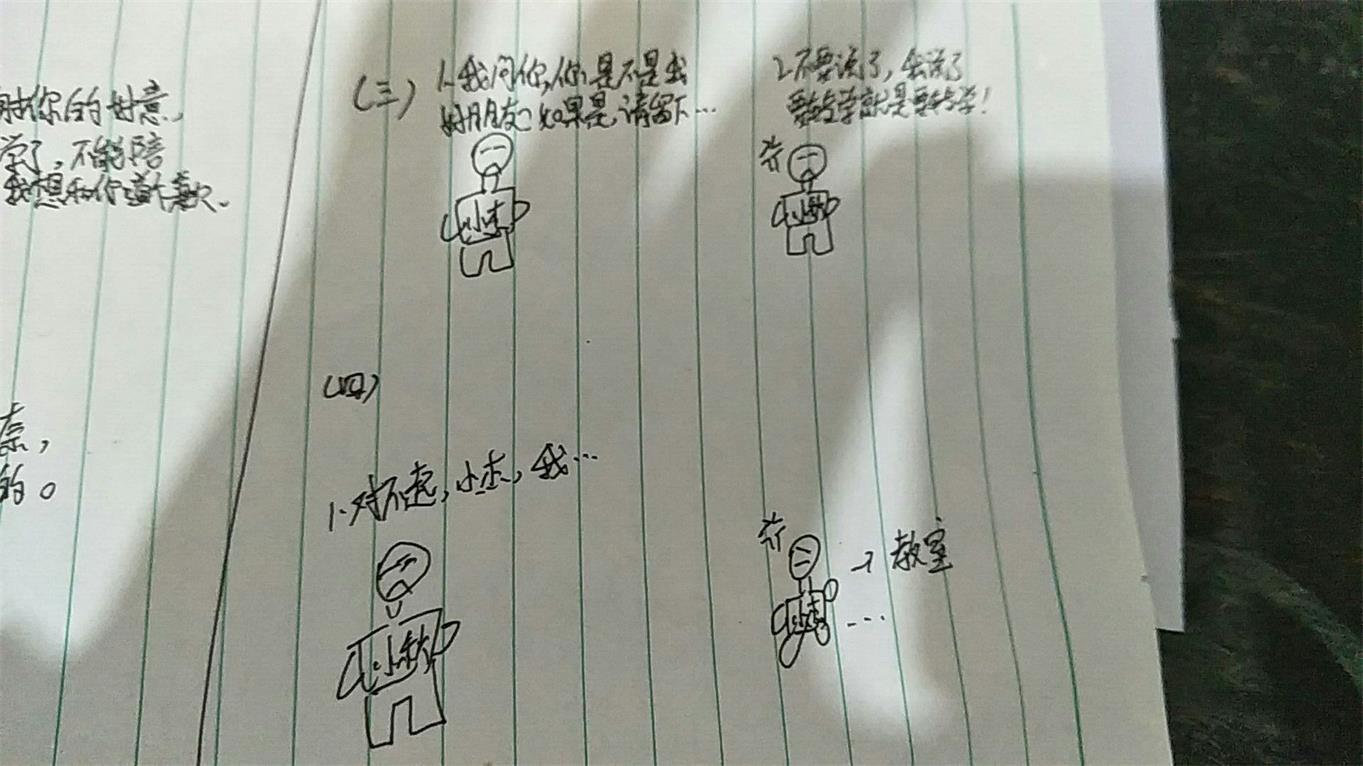 你的好意,
学了,不能陪
我想和你道个歉。
的。
(三)
1.我问你,你是不是我
好朋友?如果是,请留下…
小杰
2.不要说了,我说了
要转学就是要转学!
(四)
1.对不起,小杰,我…
小秋
→教室
小杰
…